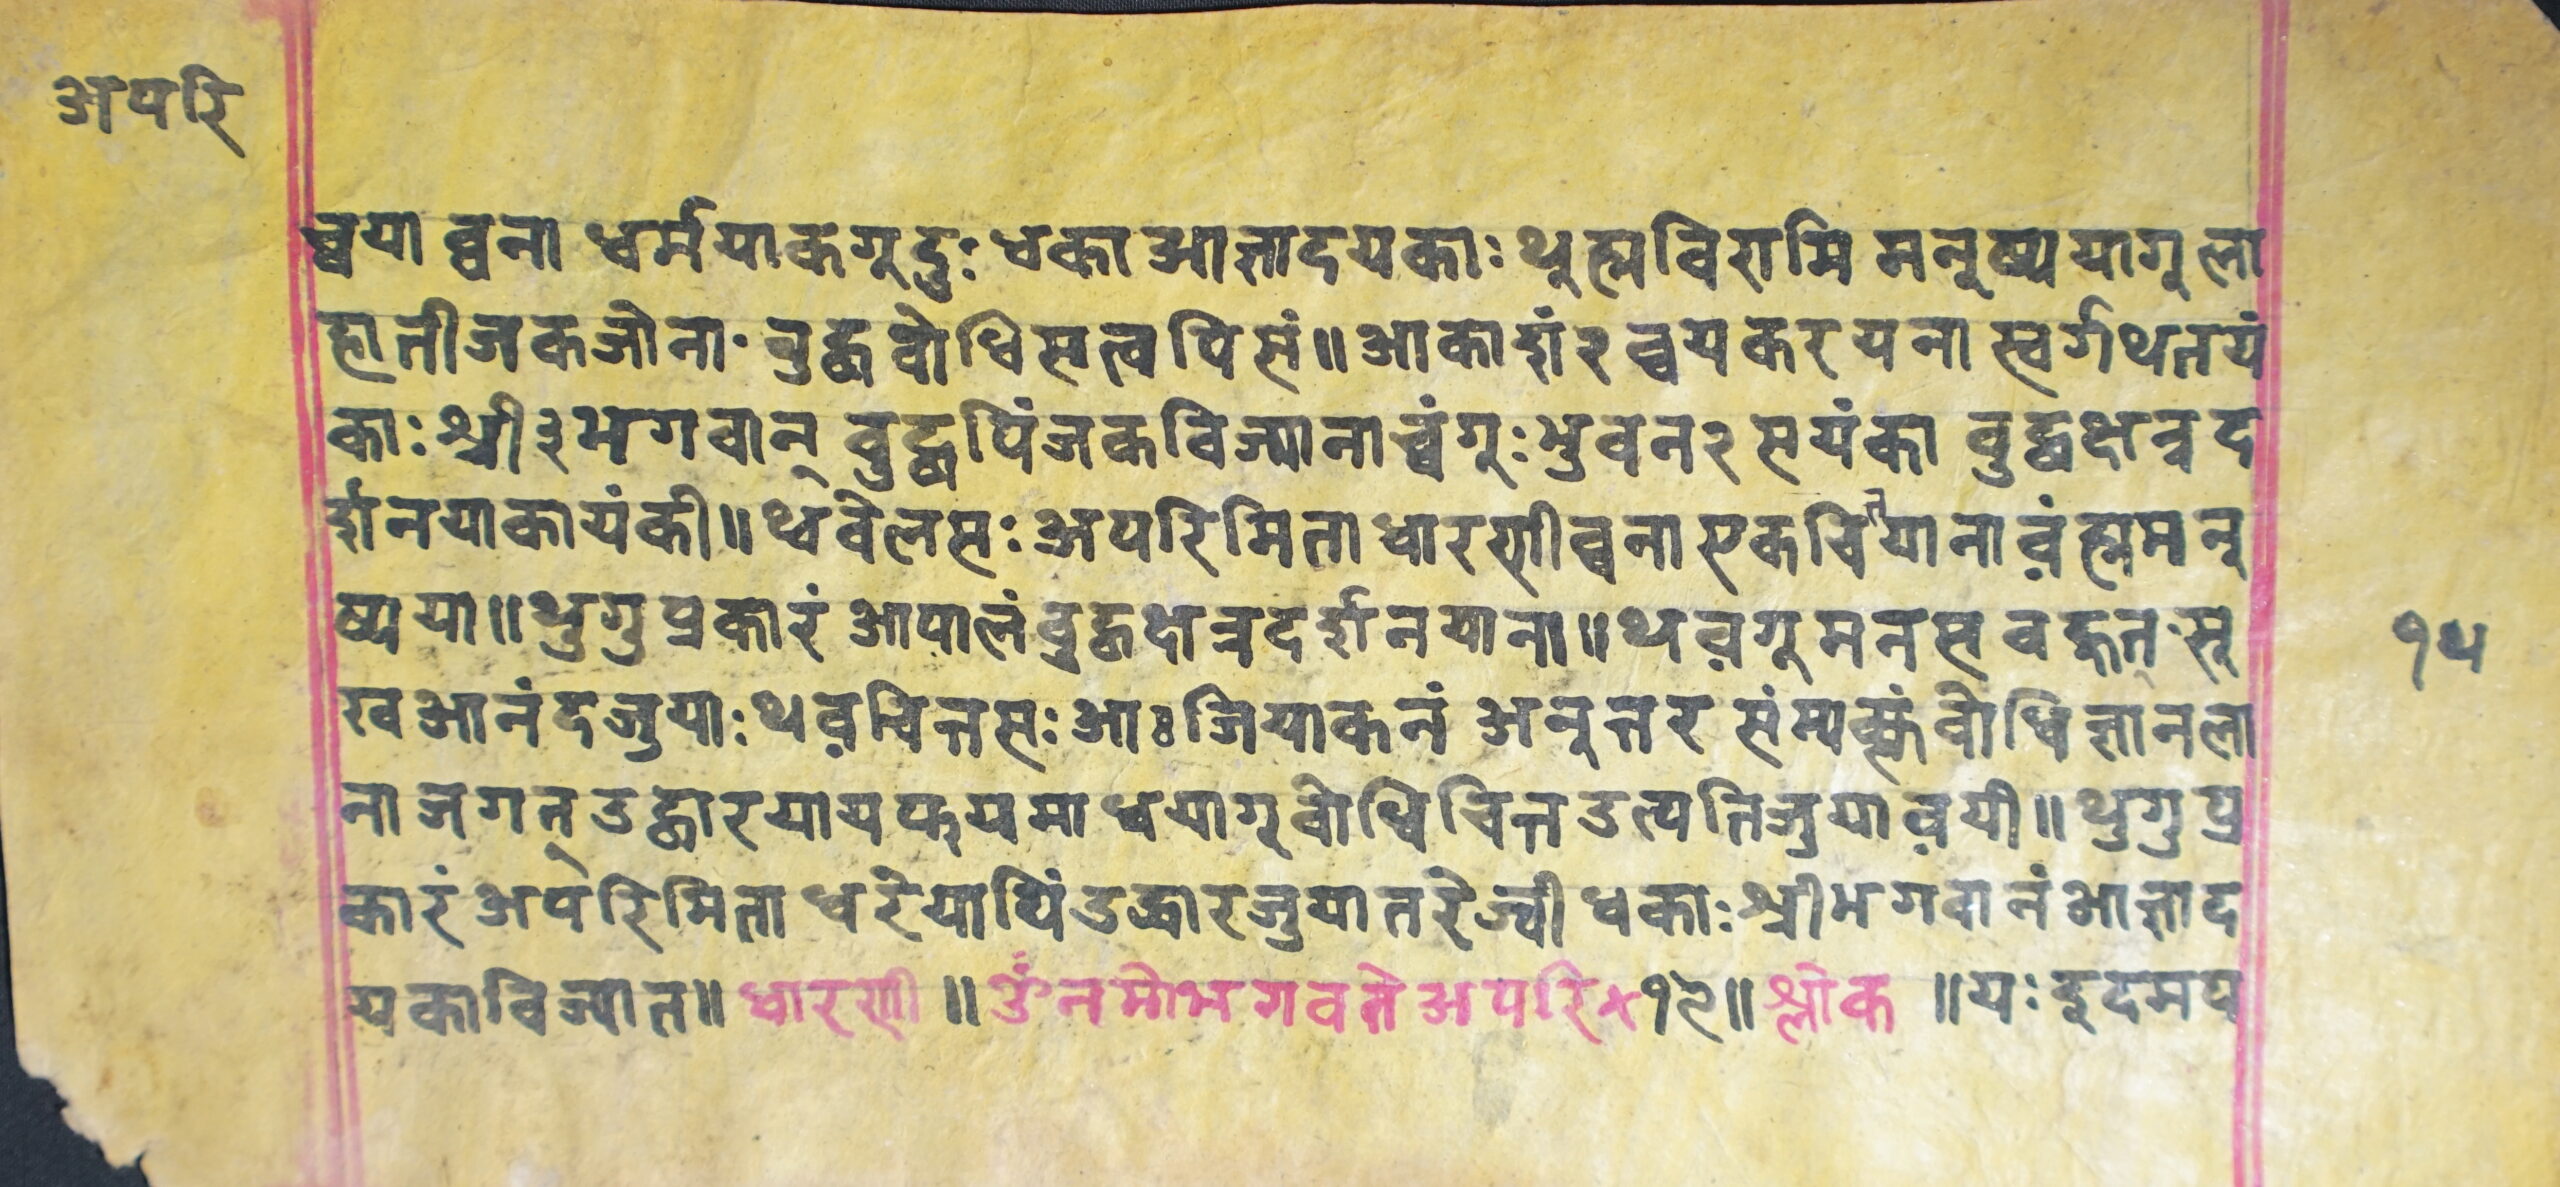 अपरि
ब्वया ब्वना धर्मयाकगूदुः धका आज्ञादयकाः थूह्मविरामि मनूष्ययागूला
हातीजकजोना· बुद्धबोधिसत्वपिसं॥ आकाशं२ ब्वयकरयना स्वर्गथतयं
काः श्री३भगवान् बुद्धपिंजकविज्यानाच्वंगूः भुवन२सयंका बुद्धक्षत्रद
र्शनयाकायंकी॥ थ्ववेलसः अपरिमिताधारणीब्वना एकचित्तयानाव़ंह्ममनू
ष्यया॥ थुगुप्रकारं आपालं बुद्धक्षत्रदर्शनयाना॥ थव़गूमनसवहुत्·सू
खआनंदजुयाः थव़चित्तसः आःजियाकनं अनूत्तर संम्यक्संबोधिज्ञानला
ना जगत् उद्धारयायफयमाधयागूबोधिचित्तउत्पत्तिजुयाव़यी॥ थुगुप्र
कारं अपरिमिता धरेयापिं उद्धारजुयातरेज्वी धकाः श्रीभगवानं आज्ञाद
यकाविज्यात॥ धारणी ॥ ॐनमोभगवतेअपरि×१२॥ श्लोक ॥ यः इदमप
१५